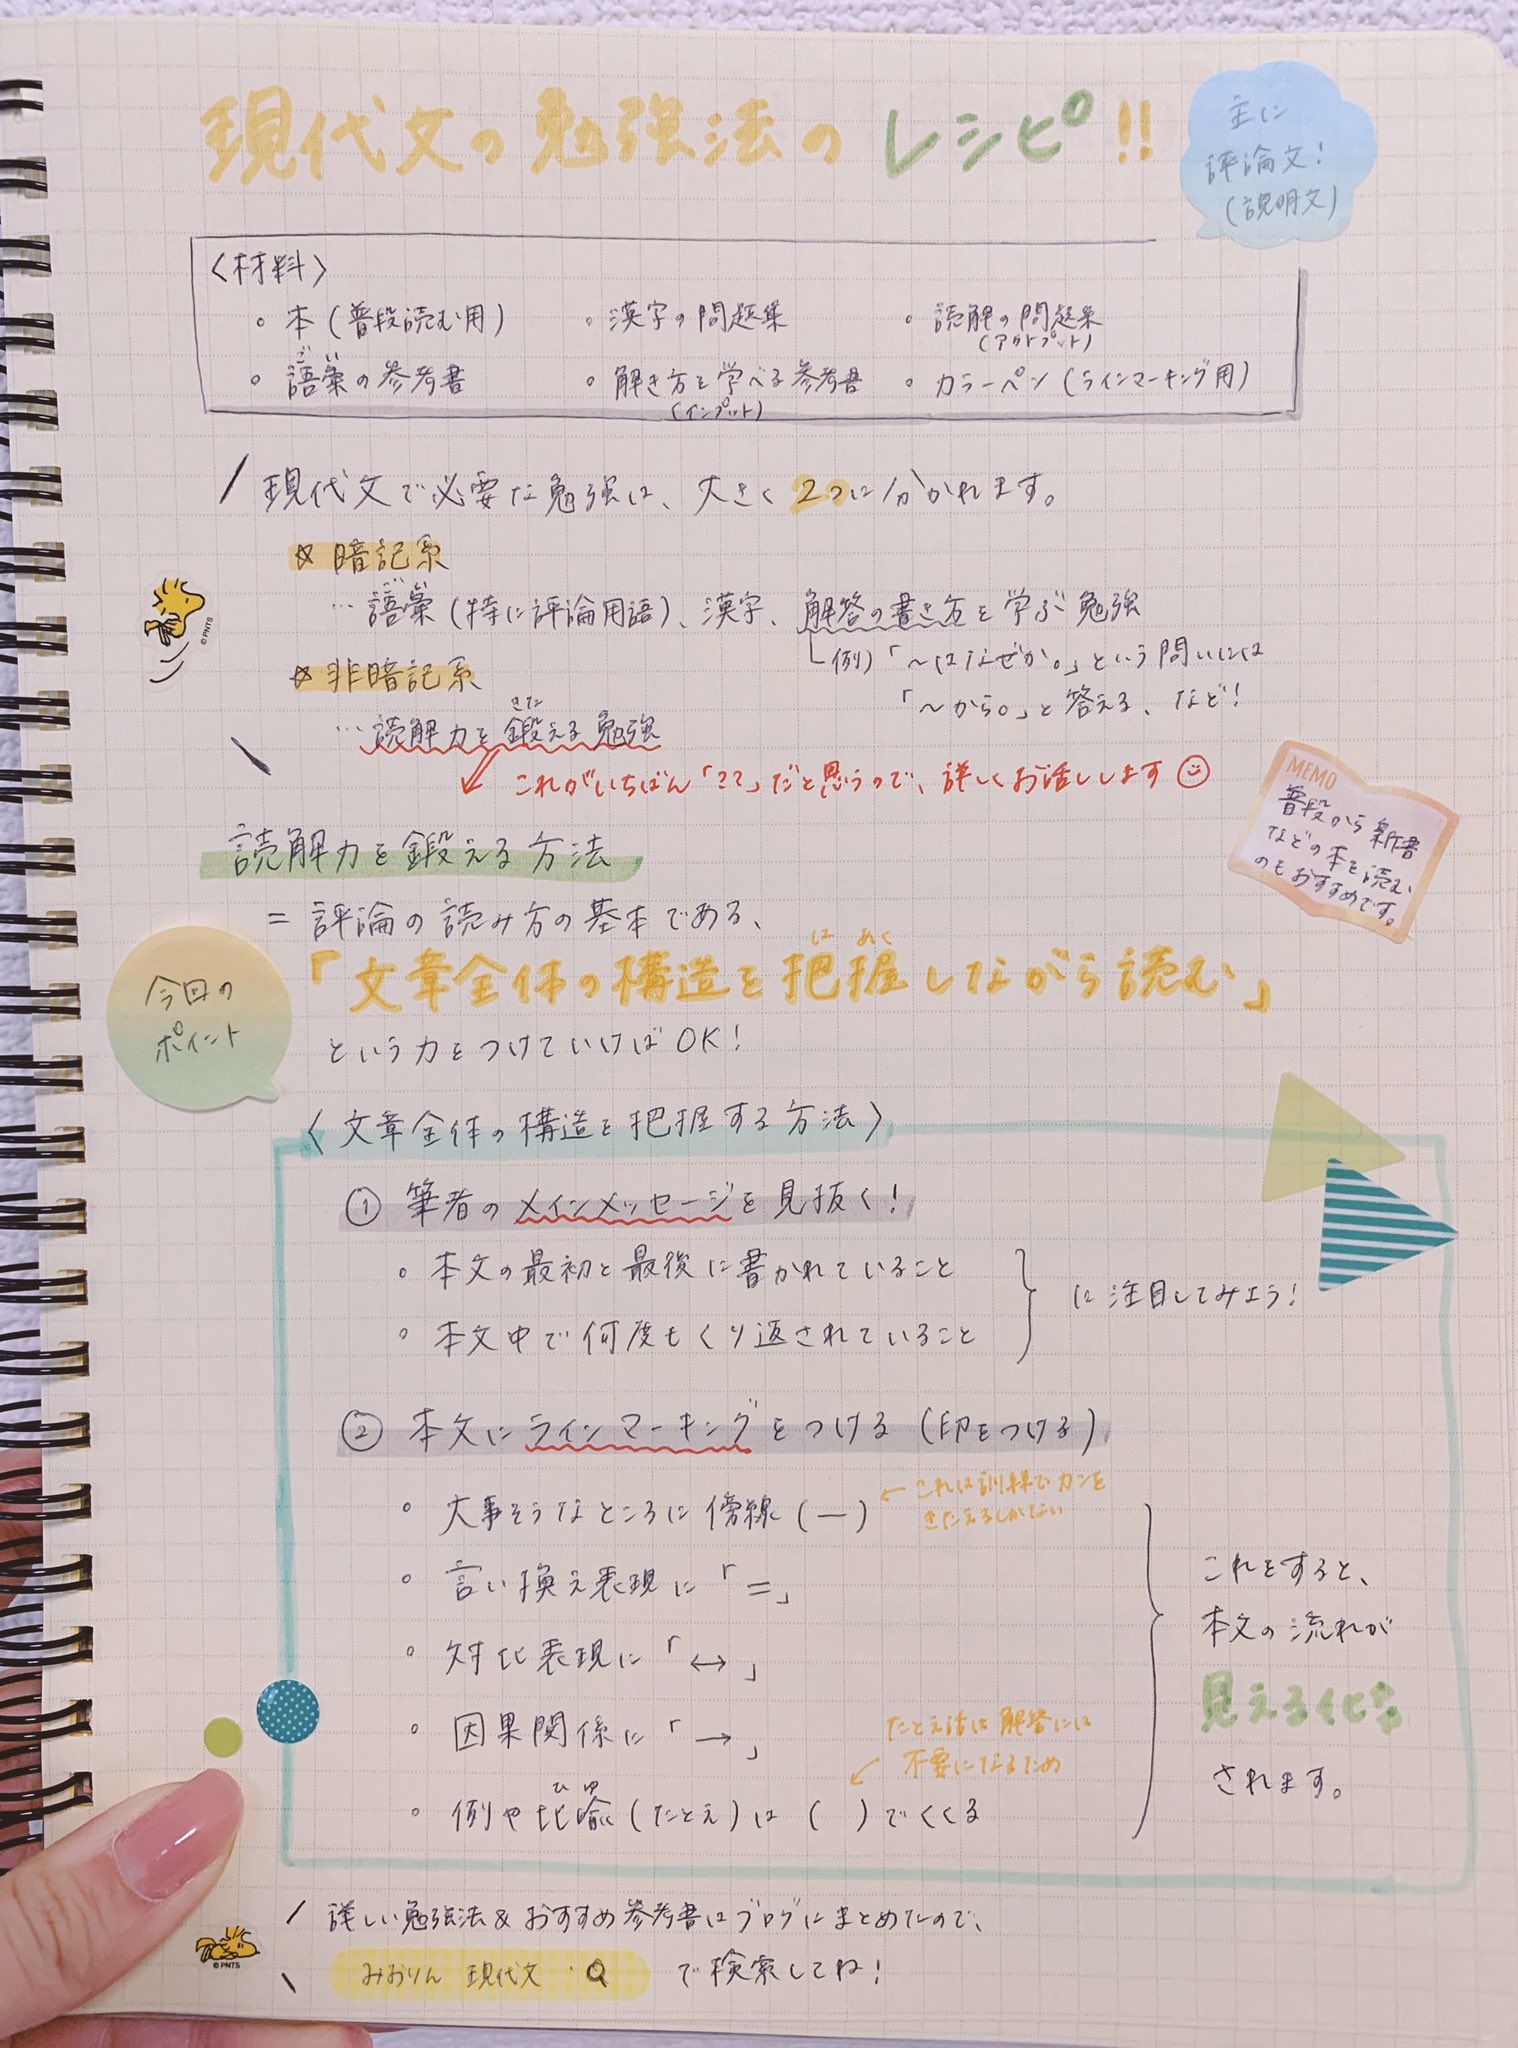 現代文の勉強法のレシピ!!
主に
評論文!
(説明文)
〈材料〉
◦ 本(普段読む用)
◦ 漢字の問題集
◦ 読解の問題集
(アウトプット)
ごい
◦ 語彙の参考書
◦ 解き方を学べる参考書
(インプット)
◦ カラーペン(ラインマーキング用)
現代文で必要な勉強は、大きく2つに分かれます。
☆ 暗記系
ごい
…語彙(特に評論用語)、漢字、解答の書き方を学ぶ勉強
例)「〜はなぜか。」という問いには
「〜から。」と答える、など!
☆ 非暗記系
きた
…読解力を鍛える勉強
これがいちばん「??」だと思うので、詳しくお話しします
© PNTS
MEMO
普段から新書
などの本を読む
のもおすすめです。
読解力を鍛える方法
= 評論の読み方の基本である、
今回の
ポイント
はあく
「文章全体の構造を把握しながら読む」
という力をつけていけばOK!
〈文章全体の構造を把握する方法〉
① 筆者のメインメッセージを見抜く!
◦ 本文の最初と最後に書かれていること
◦ 本文中で何度もくり返されていること
に注目してみよう!
② 本文にラインマーキングをつける(印をつける)
◦ 大事そうなところに傍線(―)
← これは訓練でカンを
きたえるしかない
◦ 言い換え表現に「=」
◦ 対比表現に「↔」
◦ 因果関係に「→」
たとえ話は解答には
不要になるため
ひゆ
◦ 例や比喩(たとえ)は( )でくくる
これをすると、
本文の流れが
見える化
されます。
詳しい勉強法&おすすめ参考書はブログにまとめたので、
みおりん 現代文 で検索してね!
© PNTS